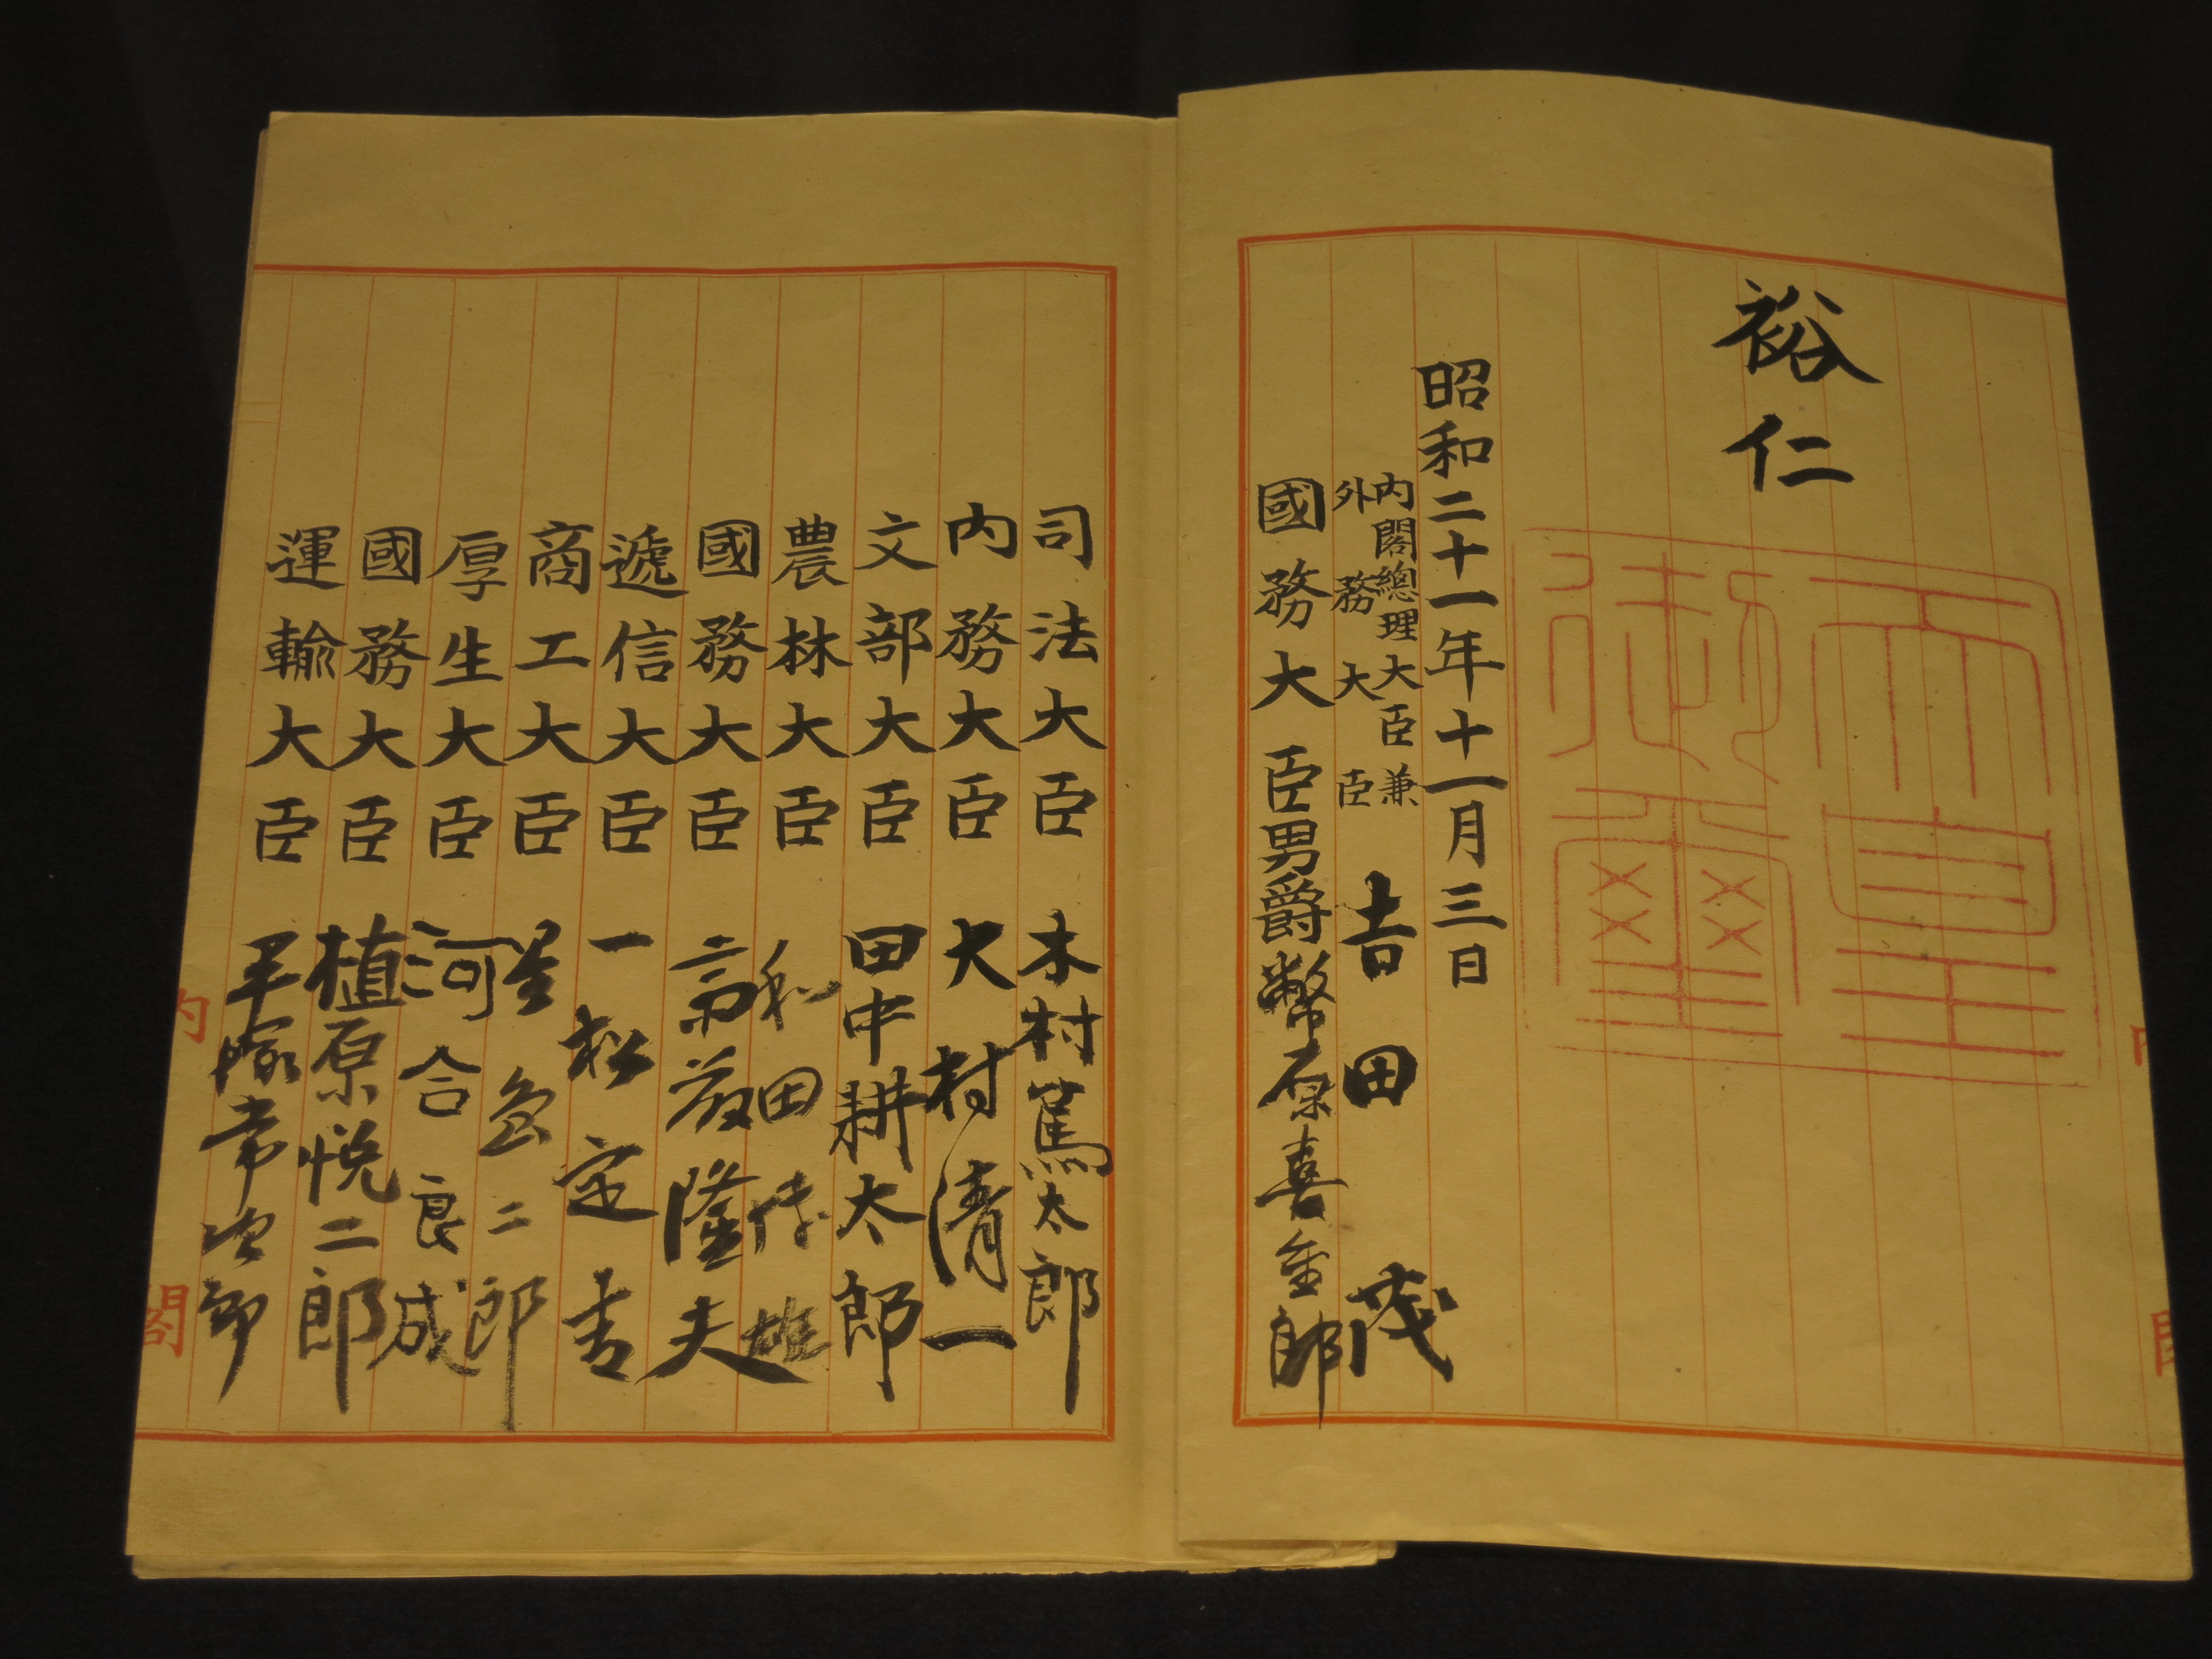 裕仁
天皇御璽
昭和二十一年十一月三日
内閣總理大臣兼
外務大臣
吉田茂
國務大臣男爵幣原喜重郎
司法大臣 木村篤太郎
内務大臣 大村清一
文部大臣 田中耕太郎
農林大臣 和田博雄
國務大臣 斎藤隆夫
遞信大臣 一松定吉
商工大臣 星島二郎
厚生大臣 河合良成
國務大臣 植原悦二郎
運輸大臣 平塚常次郎
内閣